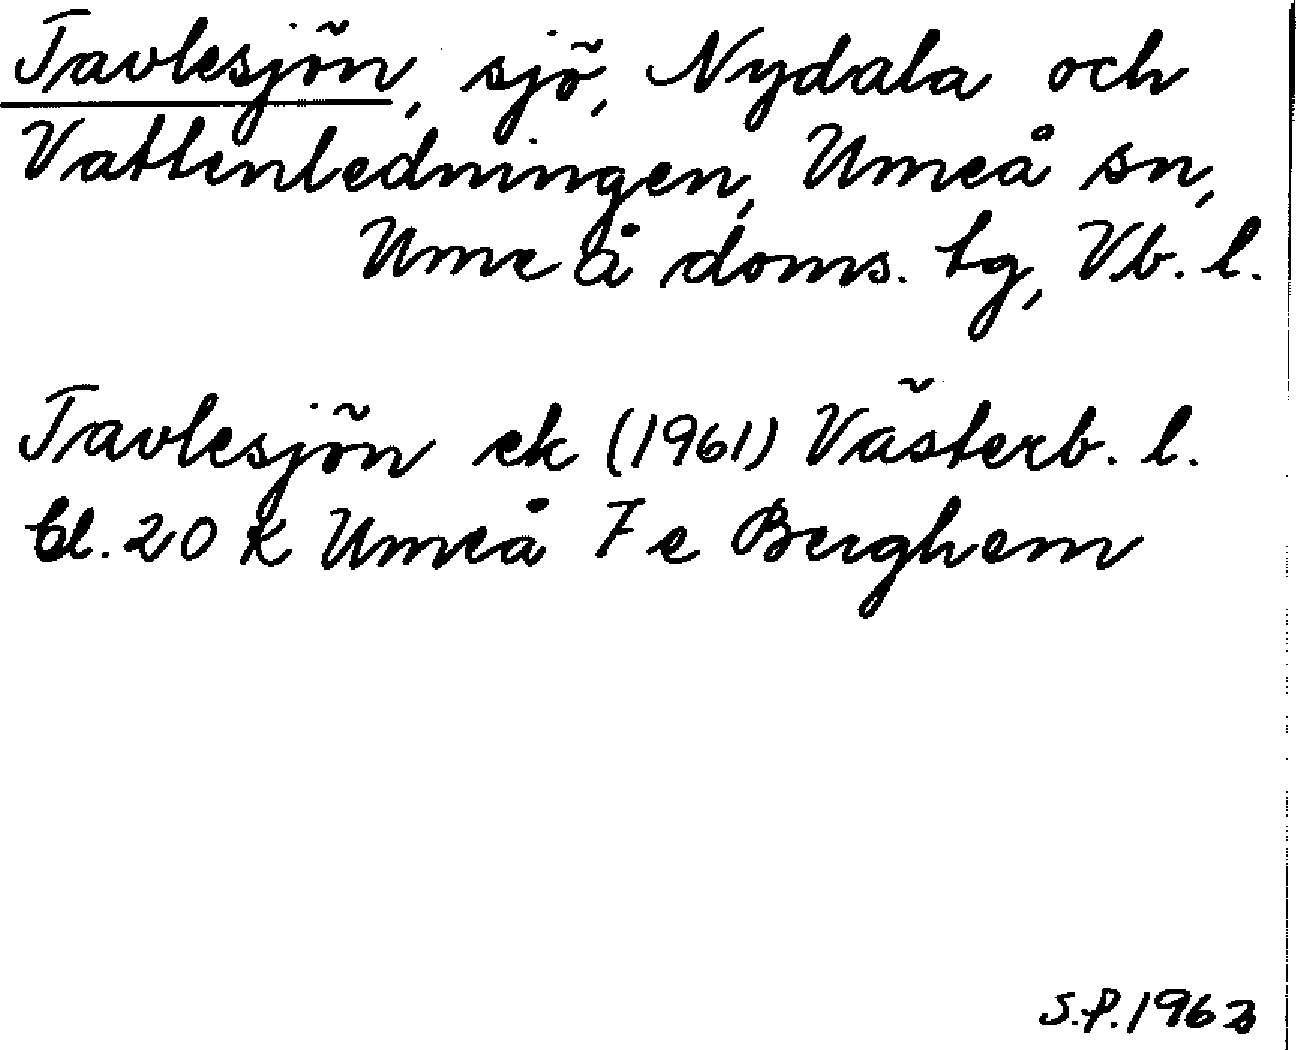 Tavlesjön, sjö, Nydala och
Vattenledningen, Umeå sn,
Umeå doms. tg, Vb. l.
Tavlesjön ek (1961) Västerb. l.
bl. 20 K Umeå 7 e Berghem
S.P. 1963